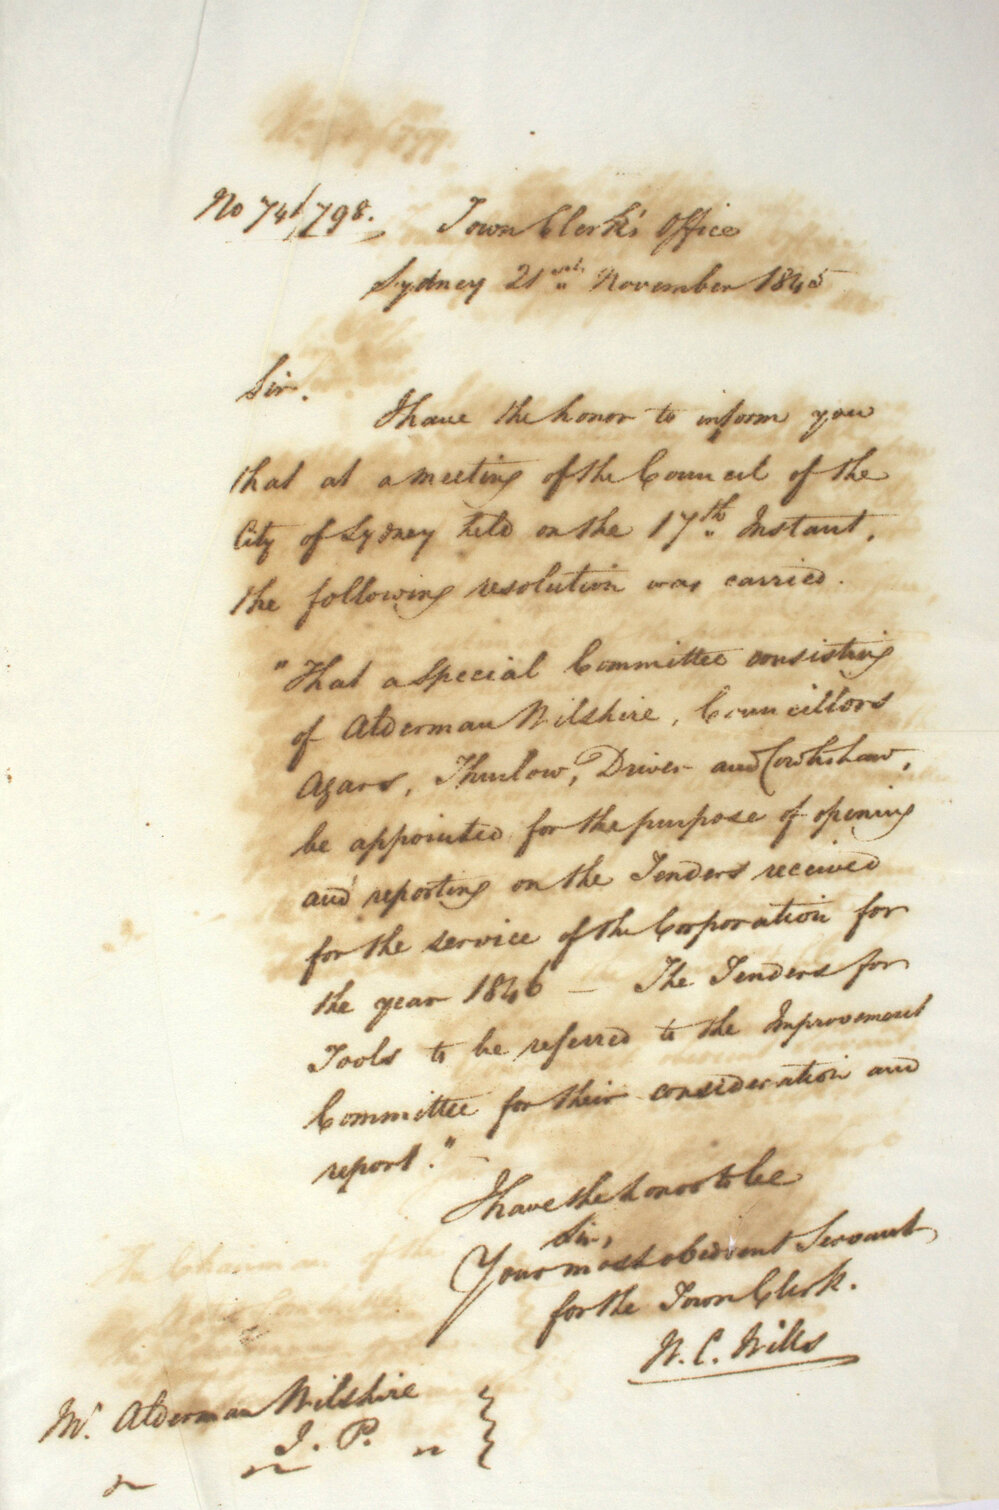 No 741/798.
Town Clerk's Office
Sydney 21st November 1845
Sir.
I have the honor to inform you
that at a meeting of the Council of the
City of Sydney held on the 17th Instant,
the following resolution was carried.
"That a Special Committee consisting
of Alderman Wilshire, Councillors
Agars, Thurlow, Driver and Cowlishaw,
be appointed for the purpose of opening
and reporting on the Tenders received
for the service of the Corporation for
the year 1846 — The Tenders for
Tools to be referred to the Improvement
Committee for their consideration and
report." —
I have the honor to be
Sir,
Your most obedient Servant
for the Town Clerk.
W. C. Wills
Mr. Alderman Wilshire
J. P.